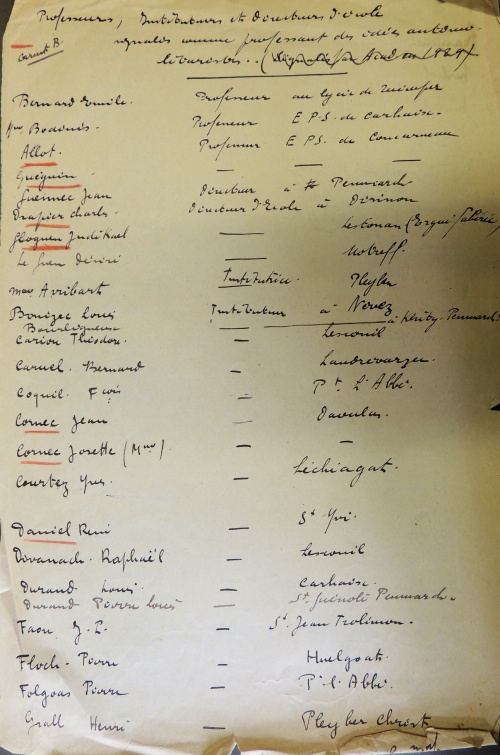 Professeurs, Instituteurs et directeurs d'école
signalés comme professant des idées autono-
Carnet B.
listaristes. (Signalés par Acad en 1929)
Bernard Emile. Professeur au lycée de Quimper
Mme Bodénès. Professeur E.P.S. de Carhaix.
Allot. Professeur E P S. de Concarneau
Guéguin. — —
Guennec Jean Directeur à Penmarch
Drapier Charles. Directeur d'école à Dirinon
Gloguen Judikael — Lestonan (Ergué-Gabéric)
Le Guen Désiré — Motreff.
Mme Apribart Institutrice. Pleyben
Bouizec Louis Instituteur à Nevez
Bourligueux — à Kérity-Penmarch.
Cariou Théodore. — Lesconil
Caruel. Bernard — Landrévarzec.
Coquil. Fçois — Pt. L'Abbé.
Cornec Jean — Daoulas.
Cornec Josette (Mme). — —
Courtez Yves — Léchiagat.
Daniel René — St Yvi.
Divanach. Raphaël — Lesconil
Durand Louis. — Carhaix.
Durand Pierre Louis — St. Guénolé Penmarch.
Faou J. L. — St. Jean Trolimon.
Floch. Pierre — Huelgoat.
Folgoas Pierre — Pt. l'Abbé.
Grall Henri — Pleyber Christ